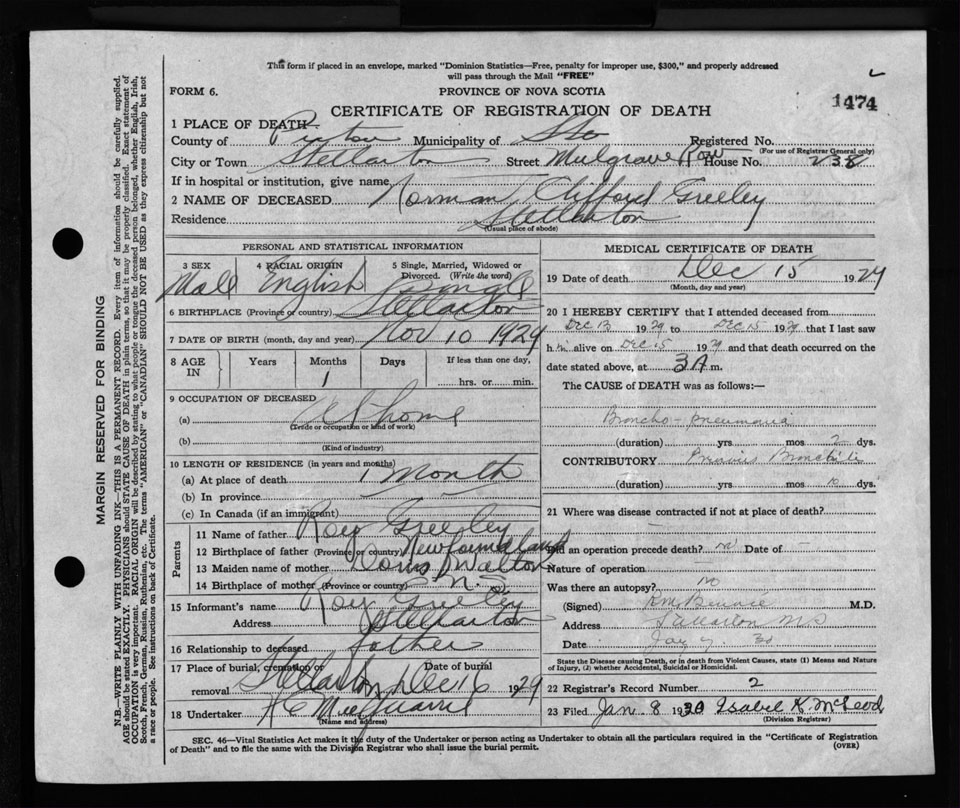 This form if placed in an envelope, marked "Dominion Statistics—Free, penalty for improper use, $300," and properly addressed
will pass through the Mail "FREE"
FORM 6. PROVINCE OF NOVA SCOTIA
1474
CERTIFICATE OF REGISTRATION OF DEATH
1 PLACE OF DEATH—
County of Pictou Municipality of Registered No.
(For use of Registrar General only)
City or Town Stellarton Street Mulgrave Row House No. 238
If in hospital or institution, give name
2 NAME OF DECEASED Norman Clifford Greeley
Residence Stellarton
(Usual place of abode)
PERSONAL AND STATISTICAL INFORMATION
3 SEX Male 4 RACIAL ORIGIN English 5 Single, Married, Widowed or Divorced. (Write the word) Single
6 BIRTHPLACE (Province or country) Stellarton
7 DATE OF BIRTH (month, day and year) Nov 10 1929
8 AGE IN Years Months 1 Days If less than one day, hrs. or min.
9 OCCUPATION OF DECEASED
(a) At home
(Trade or occupation or kind of work)
(b)
(Kind of industry)
10 LENGTH OF RESIDENCE (in years and months)
(a) At place of death 1 Month
(b) In province
(c) In Canada (if an immigrant)
Parents
11 Name of father Roy Greeley
12 Birthplace of father (Province or country) Newfoundland
13 Maiden name of mother Doris Walton
14 Birthplace of mother (Province or country) N.S.
15 Informant's name Roy Greeley
Address Stellarton
16 Relationship to deceased father
17 Place of burial, cremation or removal Stellarton Date of burial Dec 16 1929
18 Undertaker
(Name and address)
MEDICAL CERTIFICATE OF DEATH
19 Date of death Dec 15 1929
(Month, day and year)
20 I HEREBY CERTIFY that I attended deceased from
Dec 13 1929 to Dec 15 1929 that I last saw
him alive on Dec 15 1929 and that death occurred on the
date stated above, at 3 A m.
The CAUSE of DEATH was as follows:—
Broncho-pneumonia
(duration) yrs mos 2 dys.
CONTRIBUTORY Bronchitis
(duration) yrs mos 10 dys.
21 Where was disease contracted if not at place of death?
Did an operation precede death? no Date of —
Nature of operation
Was there an autopsy? no
(Signed) M.D.
Address Stellarton NS
Date Jany 30
State the Disease causing Death, or in death from Violent Causes, state (1) Means and Nature
of Injury, (2) whether Accidental, Suicidal or Homicidal.
22 Registrar's Record Number 2
23 Filed Jan 8 1930 Isabel K. McLeod
(Division Registrar)
SEC. 46—Vital Statistics Act makes it the duty of the Undertaker or person acting as Undertaker to obtain all the particulars required in the "Certificate of Registration
of Death" and to file the same with the Division Registrar who shall issue the burial permit. (OVER)
MARGIN RESERVED FOR BINDING
N.B.—WRITE PLAINLY WITH UNFADING INK—THIS IS A PERMANENT RECORD. Every item of information should be carefully supplied.
AGE should be stated EXACTLY. PHYSICIANS should STATE CAUSE OF DEATH in plain terms, so that it may be properly classified. Exact statement of
OCCUPATION is very important. RACIAL ORIGIN will be described by stating to what people or tongue the deceased person belonged, whether English, Irish,
Scotch, French, German, Russian, Ruthenian, etc. The terms "AMERICAN" or "CANADIAN" SHOULD NOT BE USED as they express citizenship but not
a race or people. See instructions on back of Certificate.